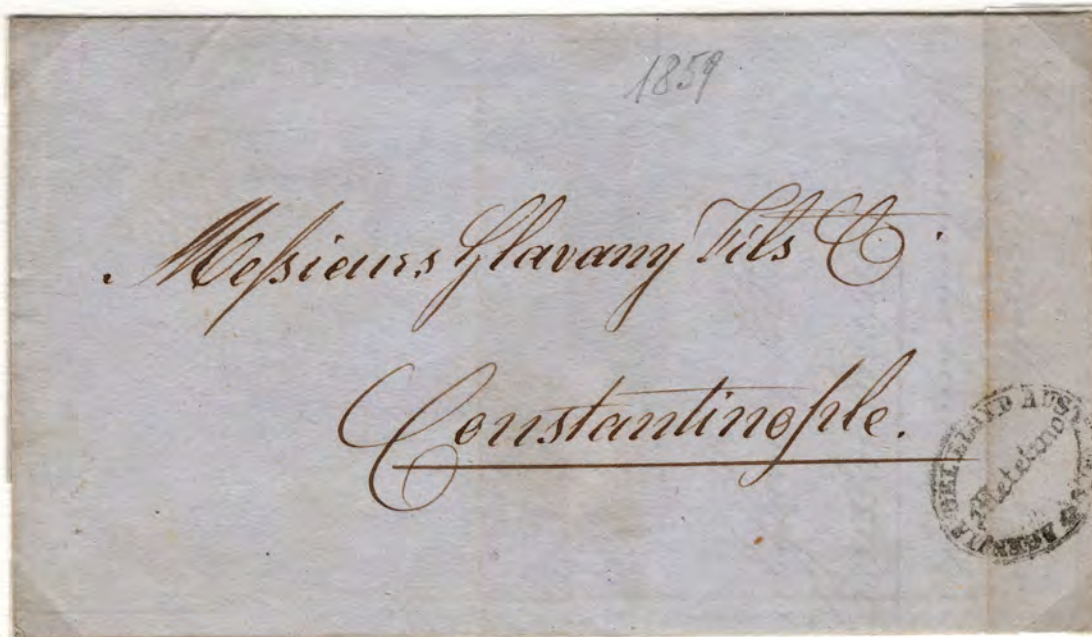 1859
Messieurs Glavany Fils & C.°
Constantinople.
AGENZIA DEL LLOYD AUST
Metelino